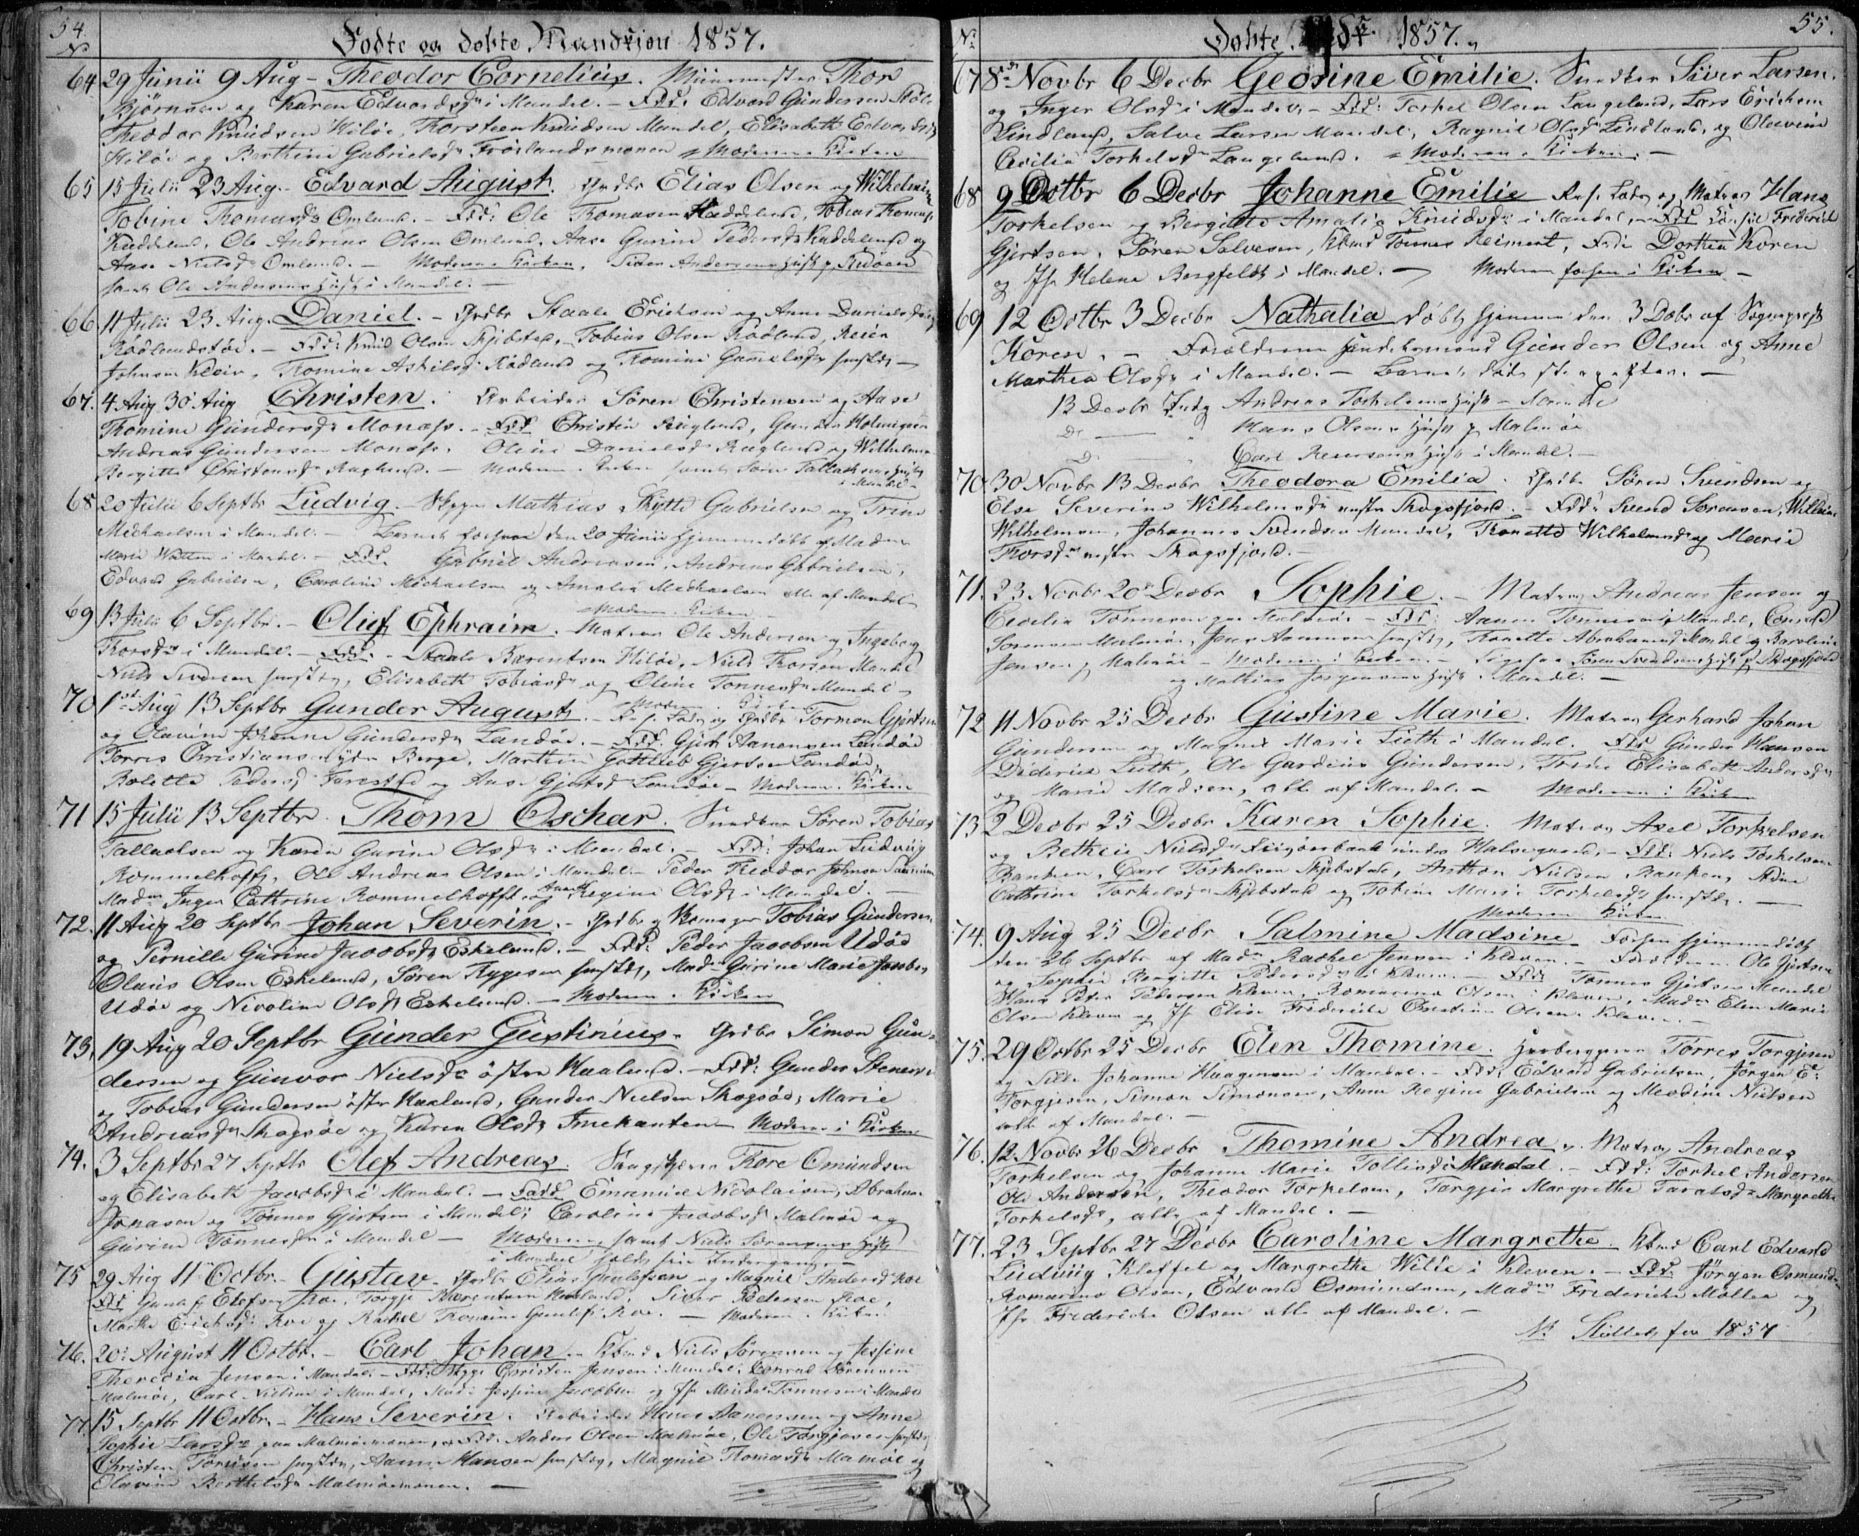 54.
No
Fødte og døbte Mandkjøn 1857.
64 29 Junii 9 Aug - Theodor Cornelius. Thor
Bjørnsen og Karen Edvardsdr i Mandal. - Fdd: Edvard Gundersen
Theodor Knudsen Hiløe, Thorsteen Knudsen Mandal, Elisabeth Edvardsdr
Hiløe og Berthine Gabrielsdr Frøislandsmonen - Moderen i Kirken
65 15 Julii 23 Aug. Edvard August. Grdbr Elias Olsen og Wilhelmine
Tobine Thomasdr Omland. - Fdd: Ole Thomasen Haddeland, Tobias Thomas
Haddeland, Ole Andreas Olsen Omland, Aase Gurine Pedersdr Haddeland og
Aase Nielsdr Omland. - Moderen i Kirken, Andersens Hust p Risøen
samt Ole Andersens Hust i Mandal. -
66 11 Julii 23 Aug. Daniel. - Grdbr Staale Erichsen og Anne Danielsdr
Rødlandstøe. - Fdd: Knud Olsen Skjebstad, Tobias Olsen Rødland, Reier
Johnsen Kleiv, Thomine Askilsdr Rødland og Thomine Gunelsdr sammestds -
67. 4 Aug 30 Aug Christen. Arbeider Søren Christensen og Aase
Thomine Gundersdr Monass. - Fdd Christen Røigland, Gunder
Andreas Gundersen Monass, Oline Danielsd Røigland og Wilhelmine
Bergitte Christensdr Røigland. - Moderen i Kirken samt Søren Tallachsens Hust
i Mandal -
68 20 Julii 6 Septbr Ludvig. - Skipper Mathias Skytte Gabrielsen og Trine
Michaelsen i Mandal. - Barnet forhen den 20 Junii hjemmedøbt af Madm
Marie i Mandal. Fdd. Gabriel Andreasen, Andreas Gabrielsen,
Edvard Gabrielsen, Caroline Michaelsen og Amalia Michaelsen alle af Mandal
Moderen i Kirken
69 13 Julii 6 Septbr. - Oluf Ephraim. Matros Ole Andersen og Ingeborg
Thorsdr i Mandal. - Fdd: - Staale Bærentsen Hiløe, Niels Thorsen Mandal
Niels sammestds, Elisabeth Tobiasdr og Oline Tønnesdr Mandal -
Moderen i Kirken
70 1ste Aug 13 Septbr Gunder August. - Grdbr Tormon Gjertsen
og Olavine Johanne Gundersdr Landøe. - Fdd. Gjert Aanensen Landøe
Torres Christiansen ydre Berge, Marthin Gottlieb Gjertsen Landøe,
Bolette Pedersdr og Aase Gjertsdr Landøe - Moderen i Kirken
71 15 Julii 13 Septbr. Thom Oschar. Snedker Søren Tobias
Tallachsen og Karen Gurine Olsdr i Mandal. - Fdd: Johan Ludvig
Rommelhoff, Ole Andreas Olsen i Mandal - Peder Theodor Johnsen
Madm Inger Cathrine Rommelhoff og Regine Olsdr i Mandal.
72. 11 Aug 20 Septbr Johan Severin. - Grdbr og Tobias Gundersen
og Pernille Gurine Jacobsdr Eskeland. - Fdd: Peder Jacobsen Udøe
Olaus Olsen Eskeland, Søren Trygesen samstds, Madm Gurine Marie Jacobsen
Udøe og Nicoline Olsdr Eskeland. - Moderen i Kirken
73. 19 Aug 20 Septbr Gunder Gustinius. - Grdbr Simon Gun-
dersen og Gunvor Nielsdr østre Haaland. - Fdd: Gunder
og Tobias Gundersen østre Haaland, Gunder Nielsen Skogsøe, Marie
Andreasdr Skogsøe og Karen Olsdr Moderen i Kirken
74. 3 Septbr 27 Septbr Olef Andreas Tore Omundsen
og Elisabeth Jacobsdr i Mandal. - Fadd Emanuel Nicolaisen, Abraham
Jonasen og Tønnes Gjertsen i Mandal; Caroline Jacobsdr Malmøe og
Gurine Tønnesdr i Mandal - Moderen samt Niels Sørensens Hust
i Mandal holdt sin Indgang. -
75 29 Aug 11 Octbr. - Gustav - Grdbr Elias Gunlefsen og Magnil Andersdr Roe
Fdd Elefsen Roe, Torgje Bærentsen Haaland, Siver Pedersen Roe,
Marthe Erichsdr Roe og Rachel Thomine Gunlefsdr Roe. - Moderen i Kirken
76. 20de August 11 Octbr. - Carl Johan. - Kbmd Niels Sørensen og Jessine
Theresia Jensen i Mandal. - Fdd: Skipp Christen Jensen i Mandal, Conrad Sørensen
Malmøe, Carl Nielsen i Mandal, Madm Jessine Jacobsen og Jfr Tønnesen i Mandal
77. 15 Septbr 11 Octbr. - Hans Severin. Arbeider Hans Aanensen og Anne
Sophie Larsdr paa Malmøemonen, - Fdd: Anders Olsen Malmøe, Ole Torgjusen samstds,
Christen Tønnesen samstds, Hansen samstds, Magnil Thomasdr Malmøe og
Olavine Berthelsdr Malmøemonen. -
55.
No
Døbte 1857.
67 8de Novbr 6 Decbr Georine Emilie. Snedker Siver Larsen
og Inger Olsdr i Mandal, - Fdd: Torkel Olsen Langeland, Lars Erichsen
Lindland, Salve Larsen Mandal, Ragnil Olsdr Lindland, og Olavine
Cecilia Torkelsdr Langeland. - Moderen i Kirken. -
68 9 Octbr 6 Decbr Johanne Emilie Matros Hans
Torkelsen og Bergitte Amalia Knudsdr i Mandal, Fdd Frederick
Gjertsen, Søren Salvesen, Kbmd Tønnes Reimert, Frue Dorthea Koren
og Jfr Helene Bergfeldt i Mandal. - Moderen forhen i Kirken -
69 12 Octbr 3 Decbr Nathalia døbt hjemme den 3 Decbr af Sognepræst
Koren. - Forældrene Gunder Olsen og Anne
Marthea Olsdr i Mandal. - Barnet døde strax efter. -
13 Decbr Indg Andreas Torkelsens Hust - Mandal
Do - Hans Olsens Hust p Malmøe
Do Carl Reiersens Hust i Mandal. -
70. 30 Novbr 13 Decbr Theodora Emilia. Grdbr Søren Svendsen og
Else Severine Wilhelmsdr vestre Skogsfjord. - Fdd: Svend Sørensen, William
Wilhelmsen, Johannes Svendsen Mandal, Thonette Wilhelmsd og Marie
Thorsdr vestre Skogsfjord. -
71. 23 Novbr 20 Decbr Sophie. - Matros Andreas Jensen og
Cecilia Tønnesen paa Malmøe - Fdd: Aanen Tønnesen i Mandal, Conrad
Sørensen Malmøe, Jens samstds, Thonette Abrahamsd Mandal og Karoline
Jensen p Malmøe - Moderen i Kirken. - Ligesaa Søren Svendsens Hust p Skogsfjord
og Mathias Jørgensens Hust i Mandal. -
72 11 Novbr 25 Decbr Gustine Marie. Matros Gerhard Johan
Gundersen og Magnil Marie Luth i Mandal. Fdd Gunder Hansen
Diderick Luth, Ole Gardeus Gundersen, Trine Elisabeth Andersdr
og Marie Madsen, alle af Mandal. - Moderen i Kirken
73 2 Decbr 25 Decbr Karen Sophie. Matros Axel Torkelsen
og Bethzie Nielsdr under Halsegaard. - Fdd: Niels Torkelsen
Banken, Carl Torkelsen Skjebstad, Anthon Nielsen Banken,
Cathrine Torkelsdr Skjebstad og Tobine Marie Torkelsdr samstds. -
Moderen i Kirken
74. 9 Aug 25 Decbr Salmine Madsine Forhen hjemmedøbt
den 26 Septbr af Madm Rachel Jensen i Kleven. - Forældrene Ole Gjertsen
og Sophie Bergitte Pedersdr i Kleven. - Fdd Tønnes Gjertsen Mandal
Hans Peter Pedersen Kleven, Romarino Olsen i Kleven, Madm Elen Marie
Olsen Kleven og Jfr Elise Fredericke Christine Olsen Kleven. -
75. 29 Octbr 25 Decbr Elen Thomine. Torres Torgjesen
og Sille Johanne Haagensen i Mandal. - Fdd: Edvard Gabrielsen, Jørgen
Torgjesen, Simon Simonsen, Anne Regine Gabrielsen og Nielsen
alle af Mandal. -
76. 12 Novbr 26 Decbr Thomine Andrea. Matros Andreas
Torkelsen og Johanne Marie Tollisdr i Mandal. - Fdd: Torkel Andersen
Ole Andersen, Theodor Torkelsen, Torgjer Margrethe Taraldsdr Margrethe
Torkelsdr, alle af Mandal. -
77. 23 Septbr 27 Decbr Caroline Margrethe. Kbmd Carl Edvard
Ludvig Kleffel og Margrethe Wille i Kleven. - Fdd: Jørgen Osmundsen
Romarino Olsen, Edvard Osmundsen, Madm Fredericke Møller og
Jfr Fredericke Olsen alle af Mandal. -
No Sluttet for 1857.